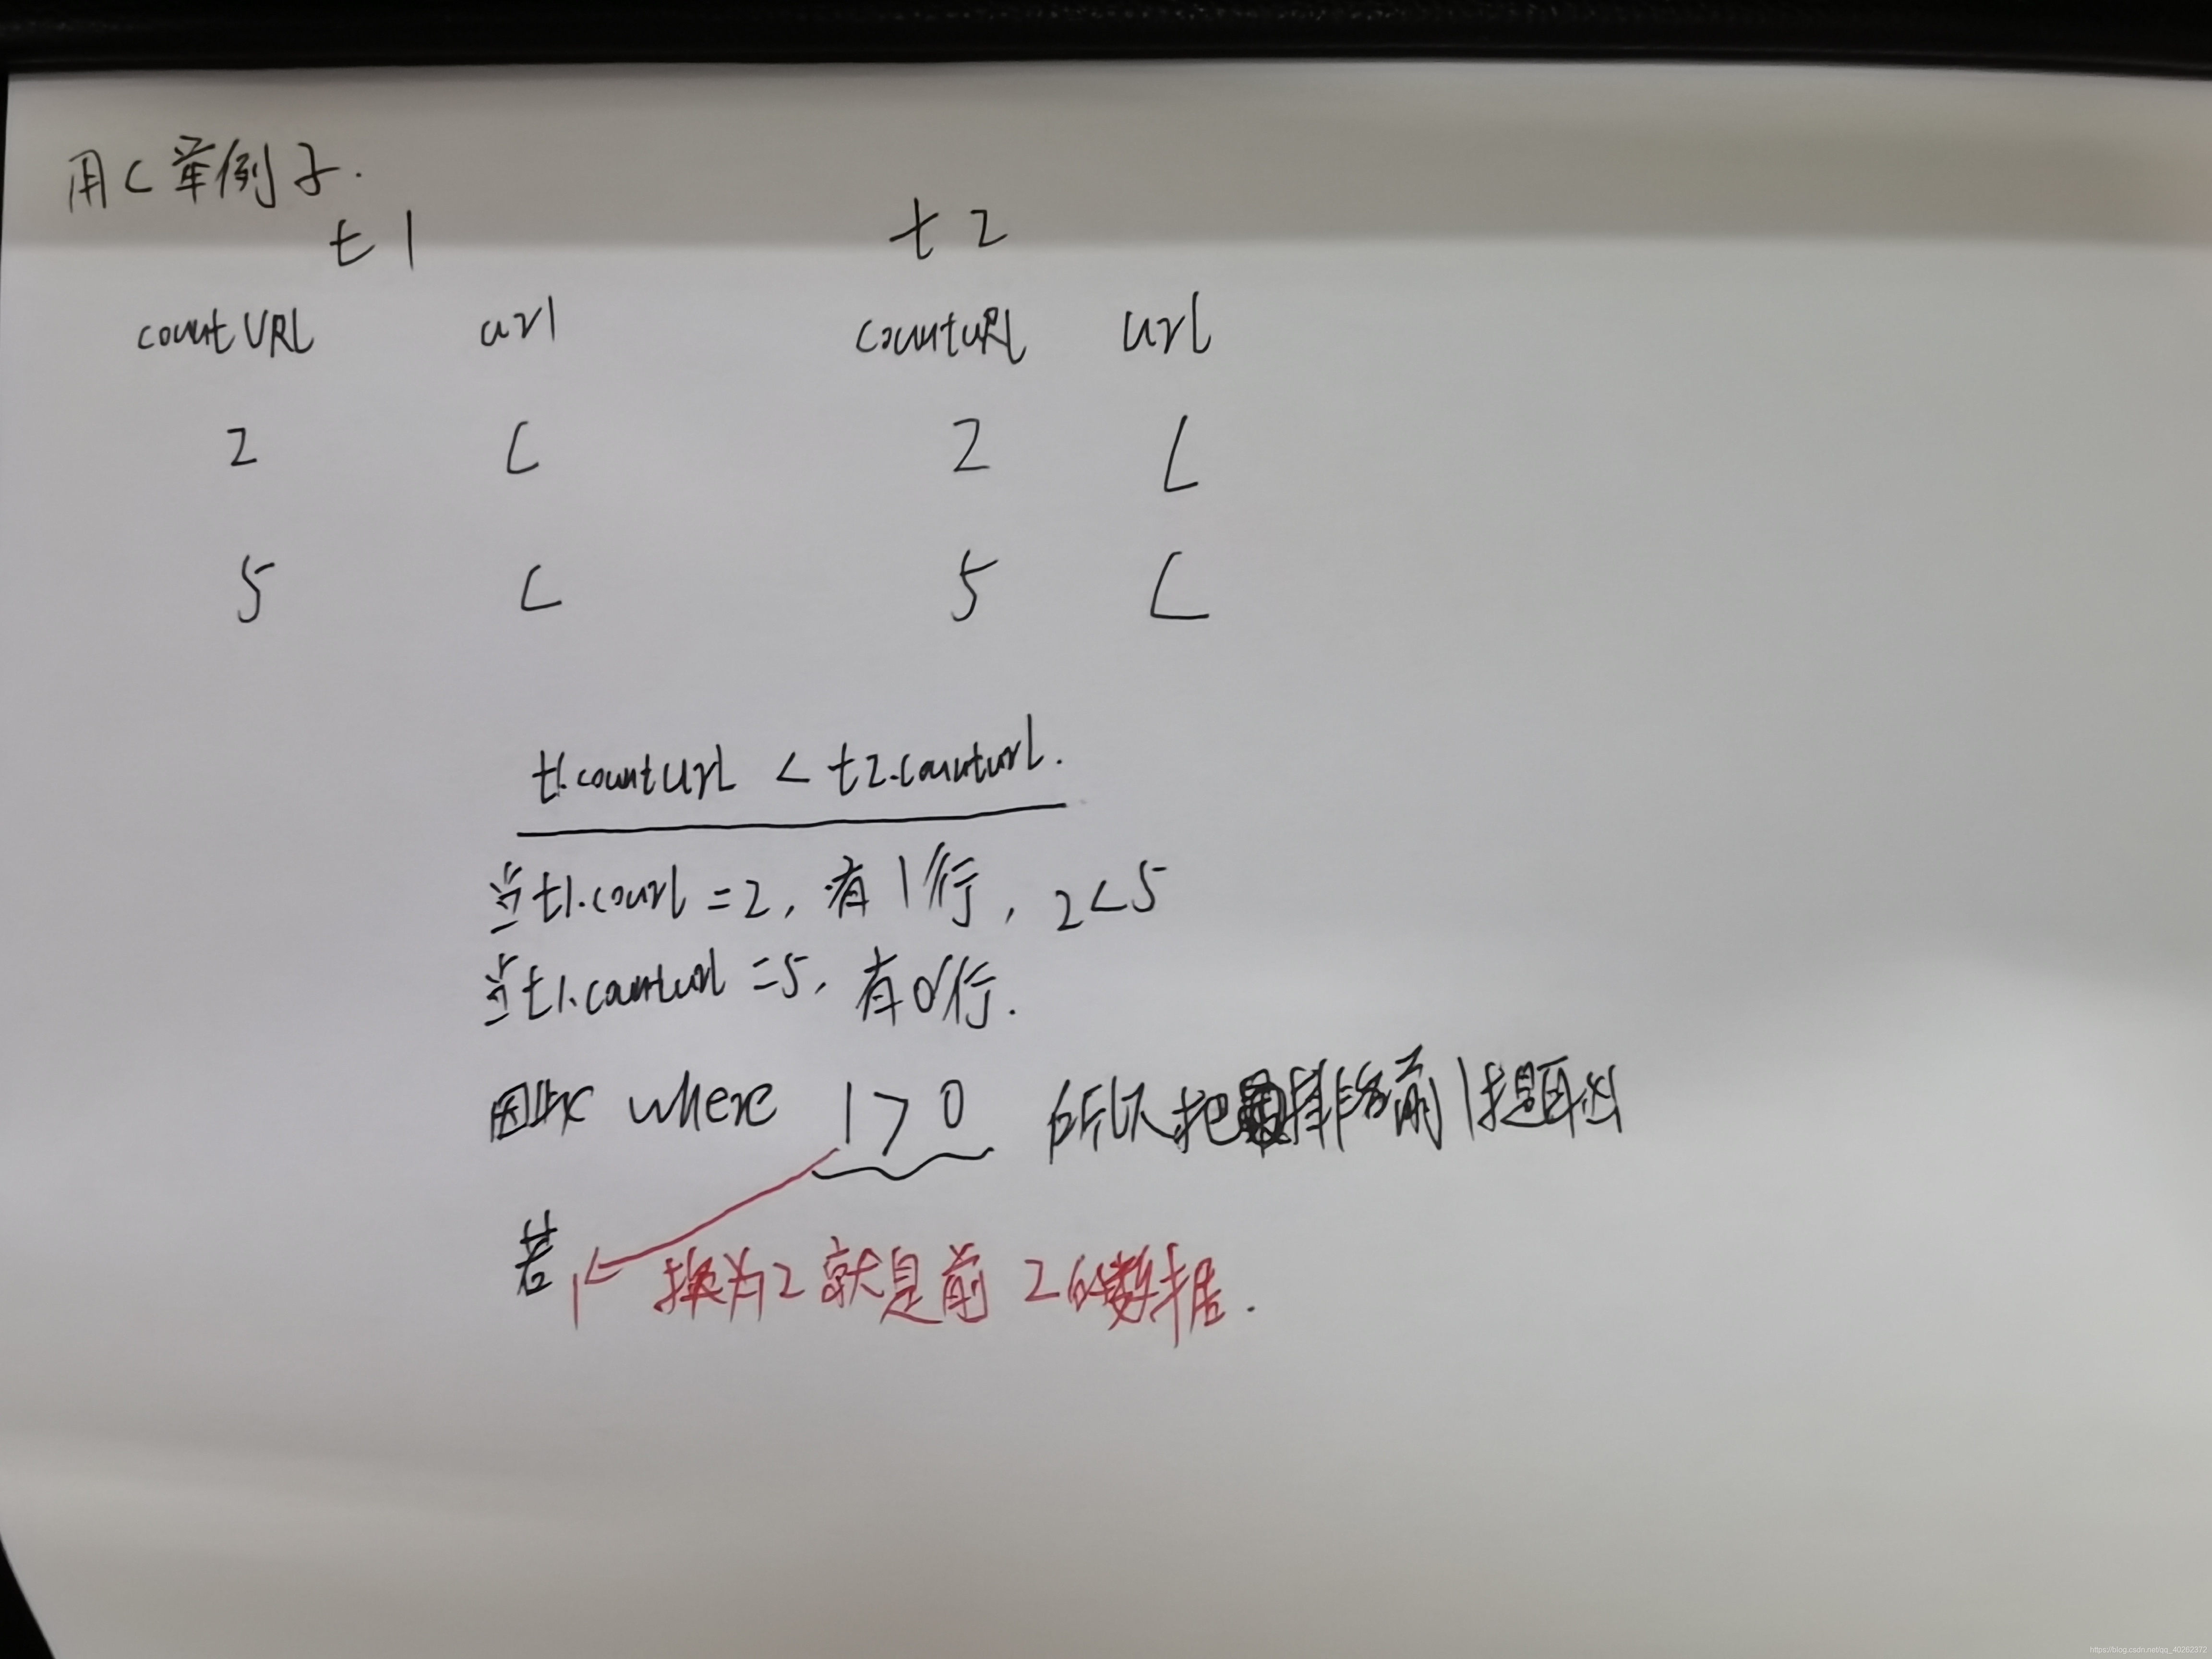 用C举例子.
t1 t2
countURL url countURL url
2 C 2 C
5 C 5 C
t1.counturl < t2.counturl.
当t1.courl=2, 有1行, 2<5
当t1.counturl=5, 有0行.
因此 where 1>0 所以把排名前1提取出
若1换为2就是前2的数据.
https://blog.csdn.net/qq_40262372